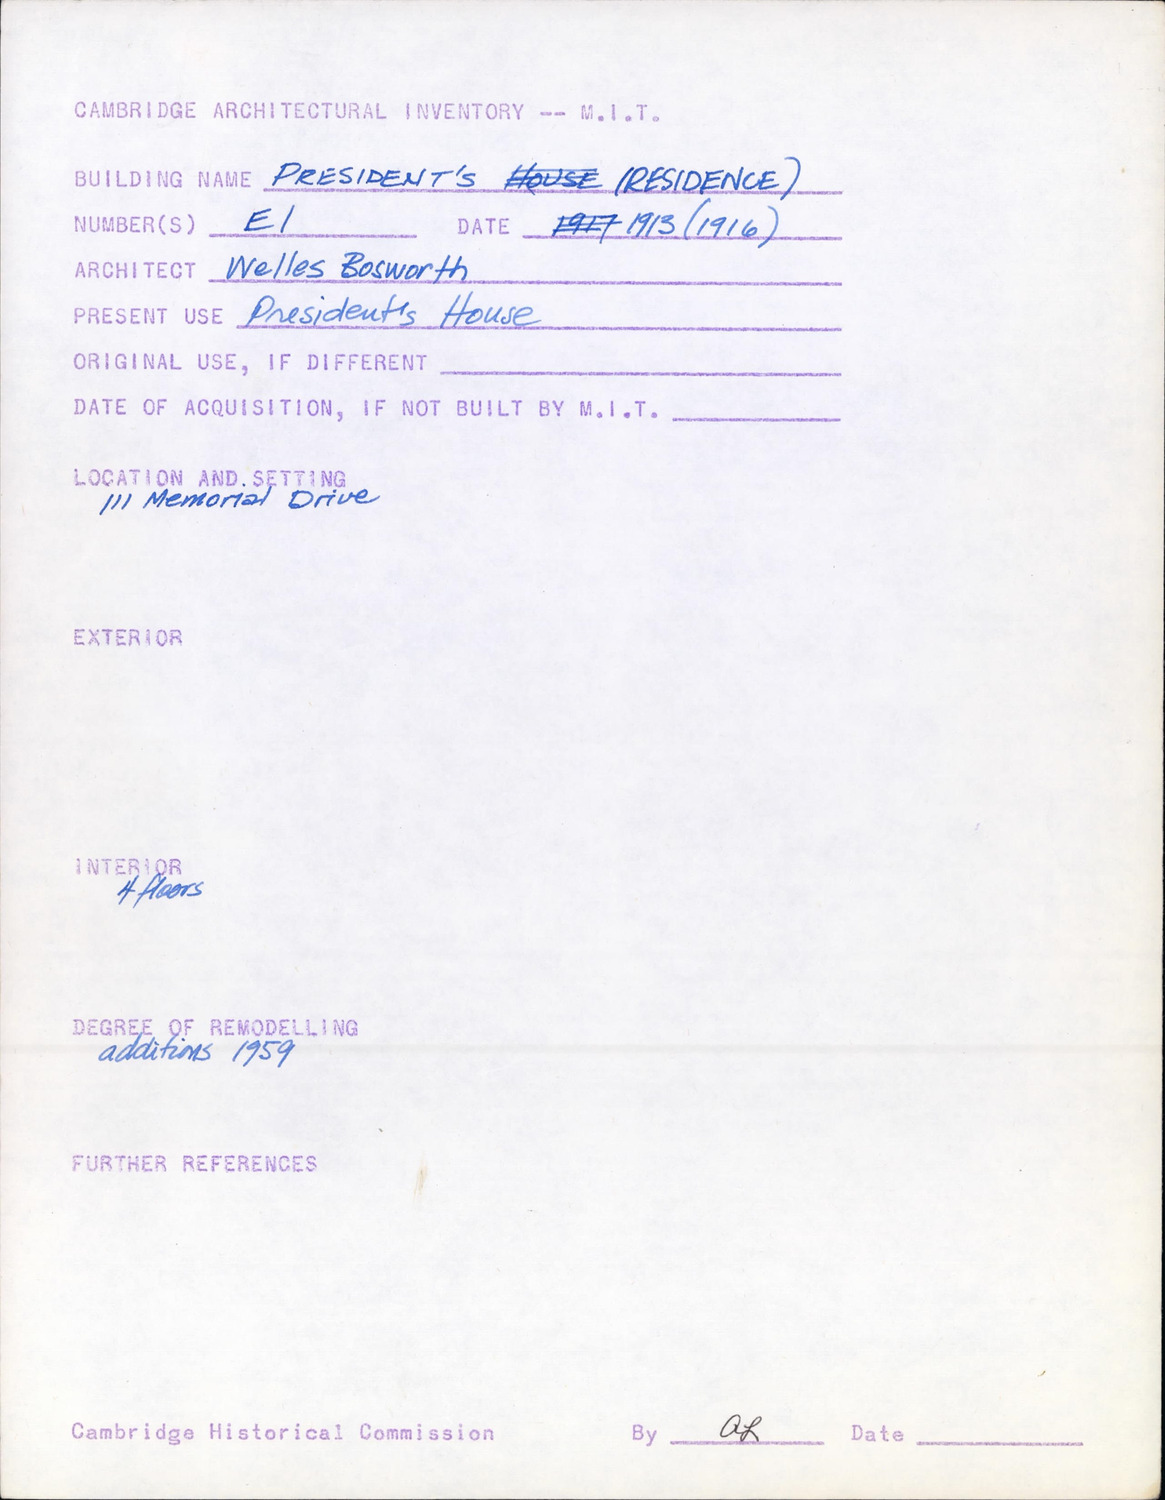 CAMBRIDGE ARCHITECTURAL INVENTORY -- M.I.T.
BUILDING NAME PRESIDENT'S HOUSE (RESIDENCE)
NUMBER(S) E1 DATE 1917 1913 (1916)
ARCHITECT Welles Bosworth
PRESENT USE President's House
ORIGINAL USE, IF DIFFERENT
DATE OF ACQUISITION, IF NOT BUILT BY M.I.T.
LOCATION AND.SETTING
111 Memorial Drive
EXTERIOR
INTERIOR
4 floors
DEGREE OF REMODELLING
additions 1959
FURTHER REFERENCES
Cambridge Historical Commission By AL Date